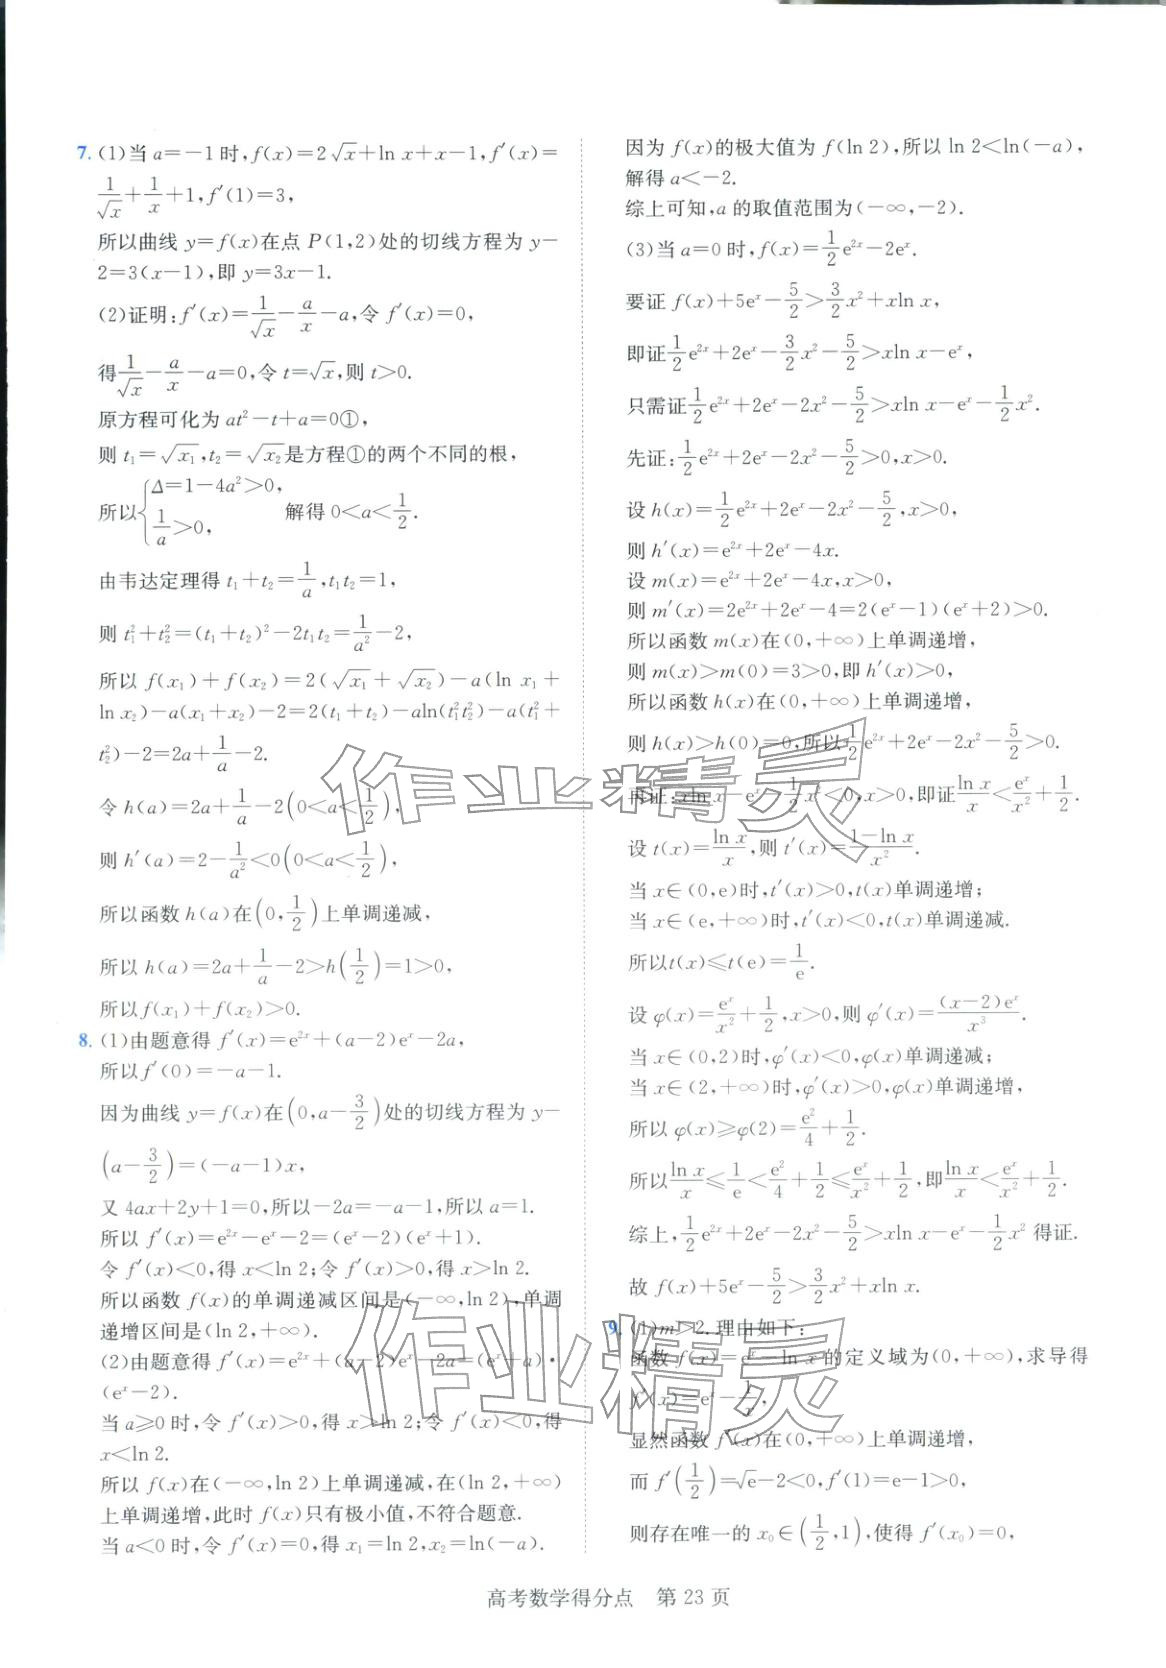 7. (1)当 a=-1 时, f(x)=2√x+ln x+x-1, f′(x)=
1/√x+1/x+1, f′(1)=3,
所以曲线 y=f(x)在点 P(1,2)处的切线方程为 y-
2=3(x-1),即 y=3x-1.
(2)证明: f′(x)=1/√x-a/x-a,令 f′(x)=0,
得1/√x-a/x-a=0,令 t=√x,则 t>0.
原方程可化为 at²-t+a=0①,
则 t₁=√x₁,t₂=√x₂是方程①的两个不同的根,
所以{Δ=1-4a²>0, 1/a>0, 解得 0<a<1/2.
由韦达定理得 t₁+t₂=1/a,t₁t₂=1,
则 t₁²+t₂²=(t₁+t₂)²-2t₁t₂=1/a²-2,
所以 f(x₁)+f(x₂)=2(√x₁+√x₂)-a(ln x₁+
ln x₂)-a(x₁+x₂)-2=2(t₁+t₂)-aln(t₁²t₂²)-a(t₁²+
t₂²)-2=2a+1/a-2.
令 h(a)=2a+1/a-2(0<a<1/2),
则 h′(a)=2-1/a²<0(0<a<1/2),
所以函数 h(a)在(0,1/2)上单调递减,
所以 h(a)=2a+1/a-2>h(1/2)=1>0,
所以 f(x₁)+f(x₂)>0.
8. (1)由题意得 f′(x)=e²ˣ+(a-2)eˣ-2a,
所以 f′(0)=-a-1.
因为曲线 y=f(x)在(0,a-3/2)处的切线方程为 y-
(a-3/2)=(-a-1)x,
又 4ax+2y+1=0,所以-2a=-a-1,所以 a=1.
所以 f′(x)=e²ˣ-eˣ-2=(eˣ-2)(eˣ+1).
令 f′(x)<0,得 x<ln 2;令 f′(x)>0,得 x>ln 2.
所以函数 f(x)的单调递减区间是(-∞,ln 2),单调
递增区间是(ln 2,+∞).
(2)由题意得 f′(x)=e²ˣ+(a-2)eˣ-2a=(eˣ+a)·
(eˣ-2).
当 a≥0 时,令 f′(x)>0,得 x>ln 2;令 f′(x)<0,得
x<ln 2.
所以 f(x)在(-∞,ln 2)上单调递减,在(ln 2,+∞)
上单调递增,此时 f(x)只有极小值,不符合题意.
当 a<0 时,令 f′(x)=0,得 x₁=ln 2,x₂=ln(-a).
因为 f(x)的极大值为 f(ln 2),所以 ln 2<ln(-a),
解得 a<-2.
综上可知,a 的取值范围为(-∞,-2).
(3)当 a=0 时,f(x)=1/2e²ˣ-2eˣ.
要证 f(x)+5eˣ-5/2>3/2x²+xln x,
即证1/2e²ˣ+2eˣ-3/2x²-5/2>xln x-eˣ,
只需证1/2e²ˣ+2eˣ-2x²-5/2>xln x-eˣ-1/2x².
先证:1/2e²ˣ+2eˣ-2x²-5/2>0,x>0.
设 h(x)=1/2e²ˣ+2eˣ-2x²-5/2,x>0,
则 h′(x)=e²ˣ+2eˣ-4x.
设 m(x)=e²ˣ+2eˣ-4x,x>0,
则 m′(x)=2e²ˣ+2eˣ-4=2(eˣ-1)(eˣ+2)>0.
所以函数 m(x)在(0,+∞)上单调递增,
则 m(x)>m(0)=3>0,即 h′(x)>0,
所以函数 h(x)在(0,+∞)上单调递增,
则 h(x)>h(0)=0,所以1/2e²ˣ+2eˣ-2x²-5/2>0.
再证:xln x-eˣ-1/2x²<0,x>0,即证ln x/x<eˣ/x²+1/2.
设 t(x)=ln x/x,则 t′(x)=1-ln x/x².
当 x∈(0,e)时,t′(x)>0,t(x)单调递增;
当 x∈(e,+∞)时,t′(x)<0,t(x)单调递减.
所以t(x)≤t(e)=1/e.
设 φ(x)=eˣ/x²+1/2,x>0,则 φ′(x)=(x-2)eˣ/x³.
当 x∈(0,2)时,φ′(x)<0,φ(x)单调递减;
当 x∈(2,+∞)时,φ′(x)>0,φ(x)单调递增,
所以 φ(x)≥φ(2)=e²/4+1/2.
所以ln x/x≤1/e<e²/4+1/2≤eˣ/x²+1/2,即ln x/x<eˣ/x²+1/2.
综上,1/2e²ˣ+2eˣ-2x²-5/2>xln x-eˣ-1/2x² 得证.
故 f(x)+5eˣ-5/2>3/2x²+xln x.
9. (1)m>2. 理由如下:
函数 f(x)=eˣ-ln x 的定义域为(0,+∞),求导得
f′(x)=eˣ-1/x,
显然函数 f′(x)在(0,+∞)上单调递增,
而 f′(1/2)=√e-2<0,f′(1)=e-1>0,
则存在唯一的 x₀∈(1/2,1),使得 f′(x₀)=0,
高考数学得分点 第 23 页
作业精灵
作业精灵